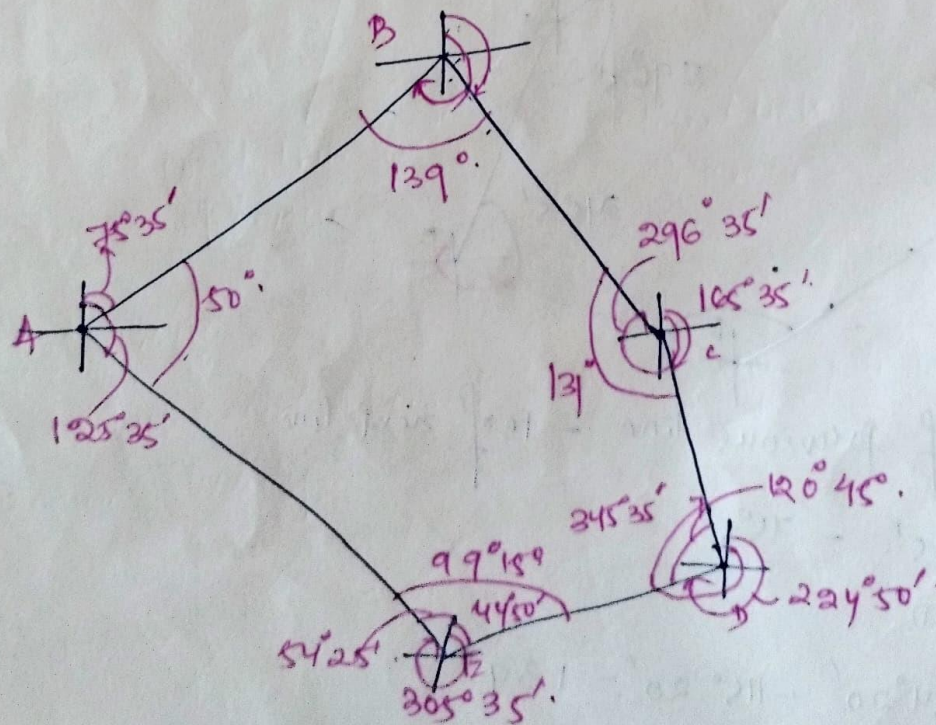 B
139°.
75°35'
A
50°.
125°35'
296° 35'
165° 35'.
C
131°
345°35'
120° 45°.
D
224°50'
99°15°
44°50'
54°25'
E
305° 35'.